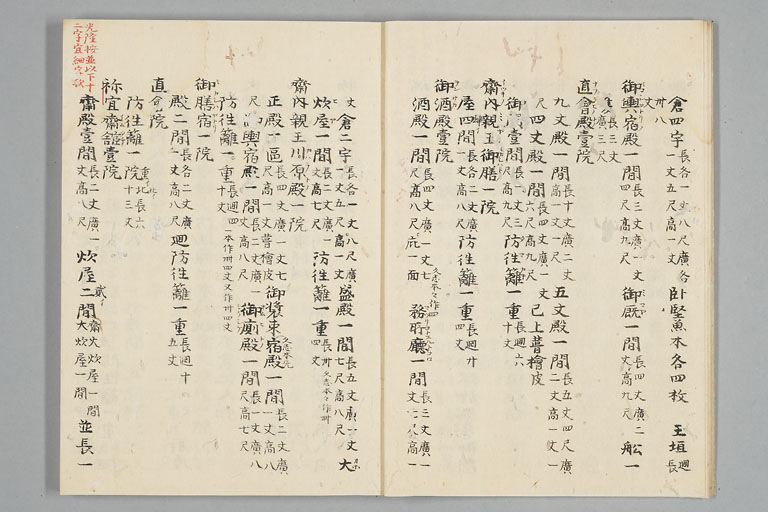 倉四宇長各一丈八尺廣各一丈五尺高一丈 卧堅魚木各四枚 玉垣廻長
卅八丈
御輿宿殿一間長三丈廣一丈四尺高九尺 御厩一間長四丈廣二丈高九尺 舩一
長三丈廣三尺
直會殿壹院
九丈殿一間長十丈廣二丈一丈一尺 五丈殿一間長五丈四尺廣二丈高一丈一
尺 四丈殿一間長四丈廣一丈六尺高九尺 已上葺檜皮
御 壹間長一丈三尺高九尺 防往籬一重長廻六十丈
齋内親王御膳一院
屋四間長各二丈廣一丈高八尺 防往籬一重長廻卅四丈
御酒殿壹院
酒殿一間長四丈廣一丈七尺高八尺 庇一面 務所廳一間長三丈廣一丈七尺高一
丈 倉二宇長各一丈八尺廣一丈五尺高一丈 盛殿一間長五丈廣一丈七尺高八尺 大
炊屋一間長二丈廣一丈高七尺 防往籬一重長廻卅四丈
齋内親王川原殿一院
正殿一區長四丈廣一丈七尺高一丈葺檜皮 御裝束宿殿一間長二丈廣一丈高八
尺 御輿宿殿一間長二丈廣一丈高八尺 御廁殿一間長一丈廣八尺高七尺
防往籬一重長廻四十丈 一本作卌四丈又作卅四丈
御膳宿一院
殿二間長各二丈廣一丈高八尺 廻防往籬一重長廻十五丈
直會院
防往籬一重長六院北十三丈
祢宜齋舘壹院
齋殿壹間長二丈廣一丈高八尺 炊屋二間齋火炊屋一間大炊屋一間 並長一
光隆按並以下十二字宜細字歟